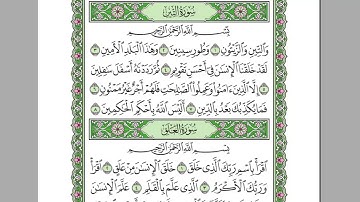 سُورَةُ التِّينِ
بِسْمِ اللَّهِ الرَّحْمَٰنِ الرَّحِيمِ
وَالتِّينِ وَالزَّيْتُونِ ١ وَطُورِ سِينِينَ ٢ وَهَٰذَا الْبَلَدِ الْأَمِينِ ٣
لَقَدْ خَلَقْنَا الْإِنسَٰنَ فِي أَحْسَنِ تَقْوِيمٍ ٤ ثُمَّ رَدَدْنَٰهُ أَسْفَلَ سَٰفِلِينَ
٥ إِلَّا الَّذِينَ ءَامَنُوا وَعَمِلُوا الصَّٰلِحَٰتِ فَلَهُمْ أَجْرٌ غَيْرُ مَمْنُونٍ ٦
فَمَا يُكَذِّبُكَ بَعْدُ بِالدِّينِ ٧ أَلَيْسَ اللَّهُ بِأَحْكَمِ الْحَٰكِمِينَ ٨
سُورَةُ الْعَلَقِ
بِسْمِ اللَّهِ الرَّحْمَٰنِ الرَّحِيمِ
اقْرَأْ بِاسْمِ رَبِّكَ الَّذِي خَلَقَ ١ خَلَقَ الْإِنسَٰنَ مِنْ عَلَقٍ ٢ اقْرَأْ
وَرَبُّكَ الْأَكْرَمُ ٣ الَّذِي عَلَّمَ بِالْقَلَمِ ٤ عَلَّمَ الْإِنسَٰنَ